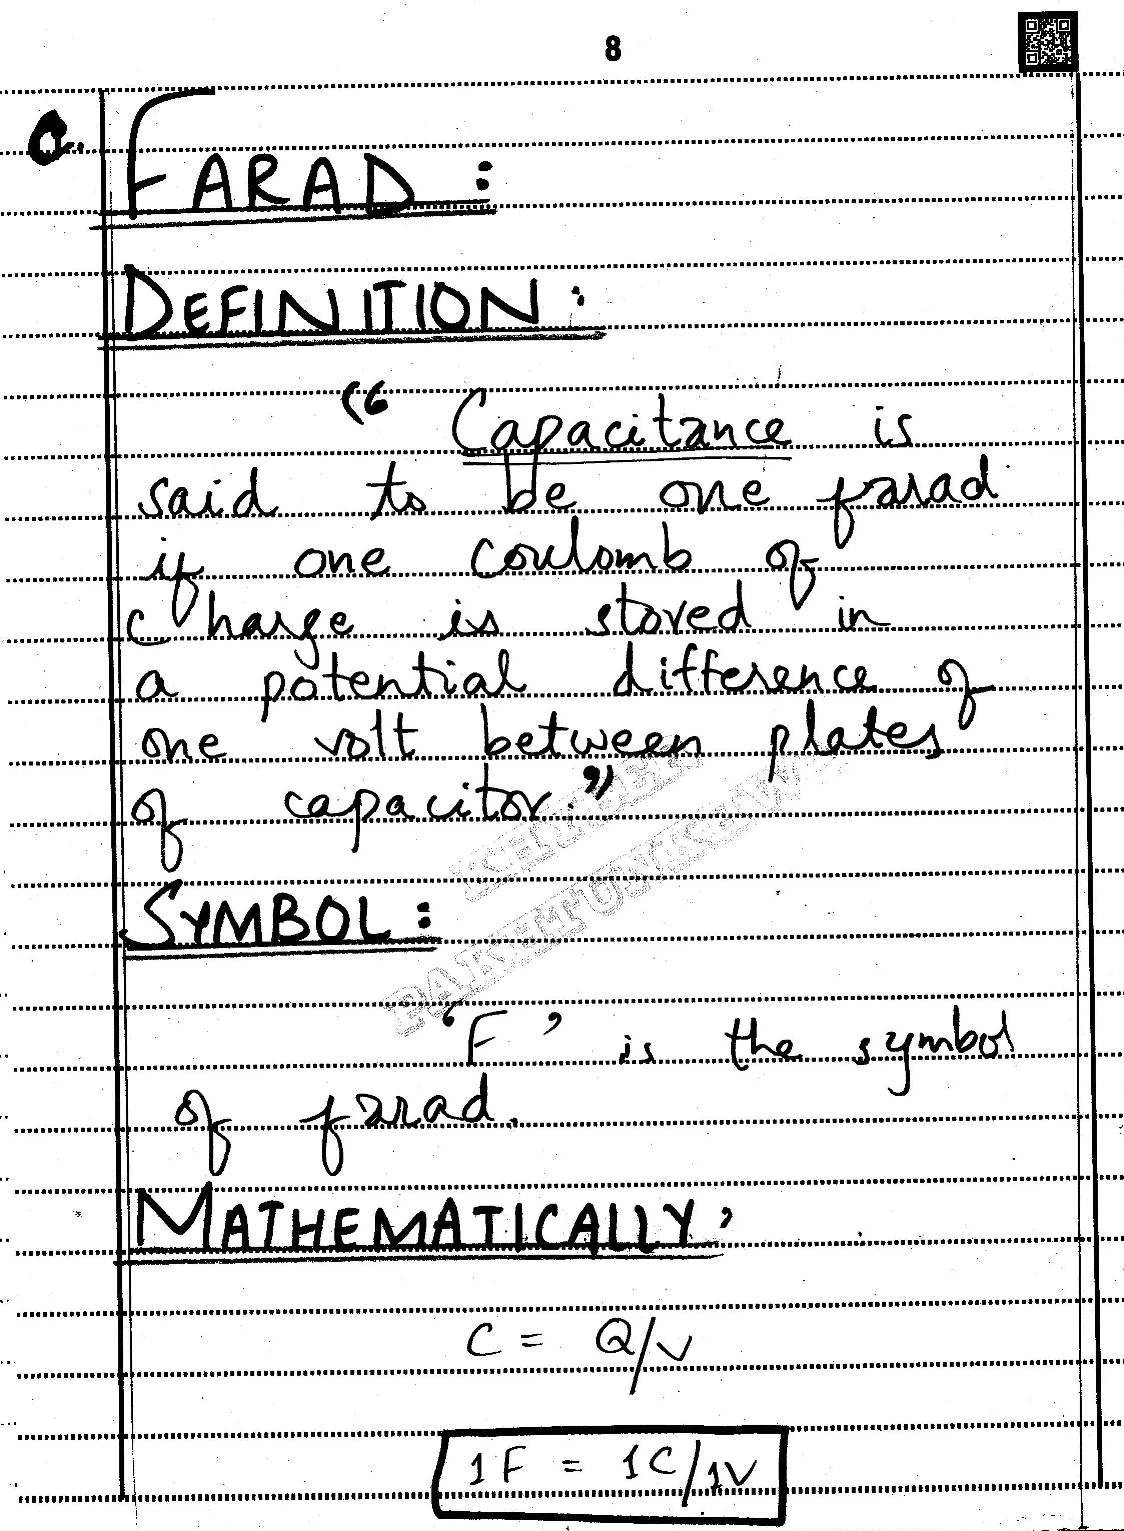 8
a.
FARAD:
DEFINITION:
“ Capacitance is
said to be one farad
if one coulomb of
charge is stored in
a potential difference of
one volt between plates
of capacitor.”
KHYBER
PAKHTUNKHWA
SYMBOL:
‘F’ is the symbol
of farad.
MATHEMATICALLY,
C = Q/V
1F = 1C/1V